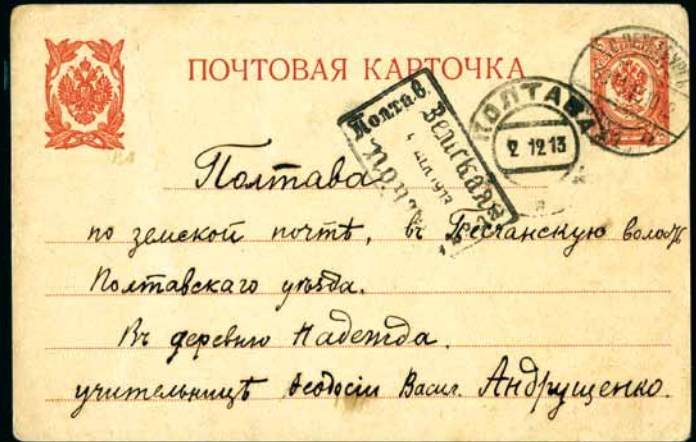 ПОЧТОВАЯ КАРТОЧКА
ПОЛТАВА
2 12 13
Полтав. Земская
1913
Полтава
по земской почтѣ, въ Песчанскую волость
Полтавскаго уѣзда.
Въ деревню Надежда.
учительницѣ Ѳеодосіи Васил. Андрущенко.